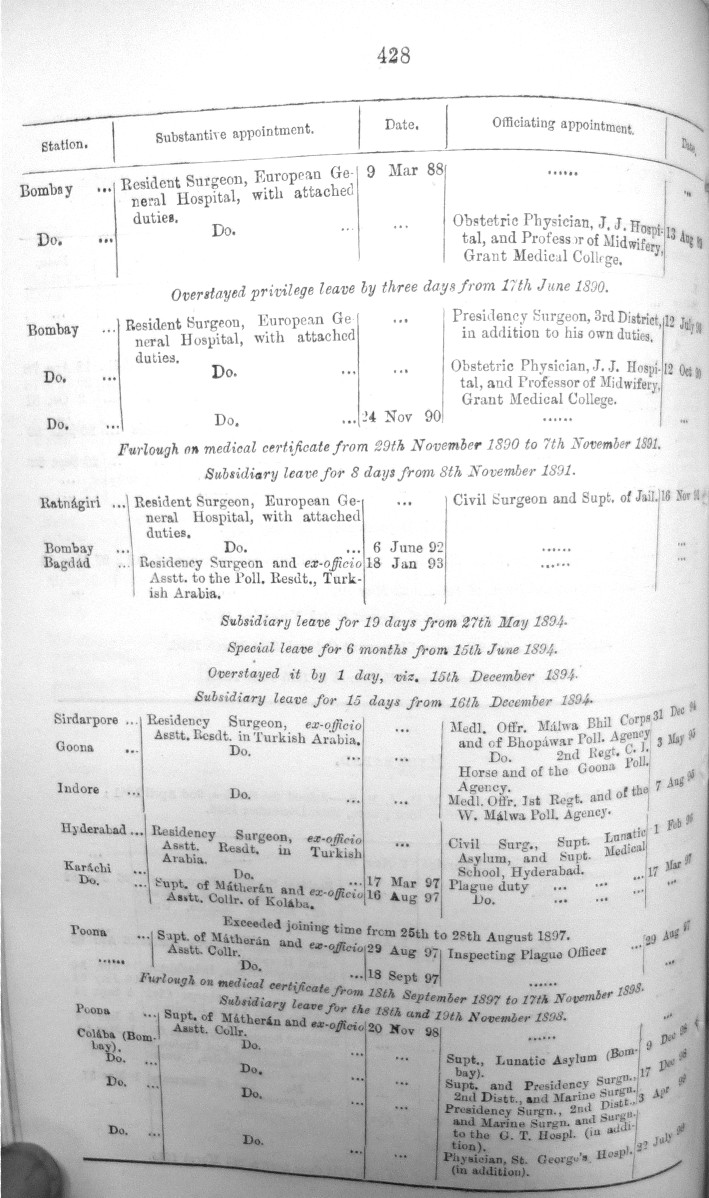 428
Station. Substantive appointment. Date. Officiating appointment. Date.
Bombay ... Resident Surgeon, European Ge- 9 Mar 88 ...... ...
neral Hospital, with attached
duties.
Do. ... Do. ... ... Obstetric Physician, J. J. Hospi- 13 Aug
tal, and Professor of Midwifery,
Grant Medical College.
Overstayed privilege leave by three days from 17th June 1890.
Bombay ... Resident Surgeon, European Ge- ... Presidency Surgeon, 3rd District, 12 July 90
neral Hospital, with attached in addition to his own duties.
duties.
Do. ... Do. ... ... Obstetric Physician, J. J. Hospi- 12 Oct 90
tal, and Professor of Midwifery,
Grant Medical College.
Do. ... Do. ... 24 Nov 90 ...... ...
Furlough on medical certificate from 29th November 1890 to 7th November 1891.
Subsidiary leave for 8 days from 8th November 1891.
Ratnágiri ... Resident Surgeon, European Ge- ... Civil Surgeon and Supt. of Jail. 16 Nov
neral Hospital, with attached
duties.
Bombay ... Do. ... 6 June 92 ...... ...
Bagdád ... Residency Surgeon and ex-officio 18 Jan 93 ...... ...
Asstt. to the Poll. Resdt., Turk-
ish Arabia.
Subsidiary leave for 19 days from 27th May 1894.
Special leave for 6 months from 15th June 1894.
Overstayed it by 1 day, viz. 15th December 1894.
Subsidiary leave for 15 days from 16th December 1894.
Sirdarpore ... Residency Surgeon, ex-officio ... Medl. Offr. Málwa Bhil Corps 31 Dec 94
Asstt. Resdt. in Turkish Arabia. and of Bhopáwar Poll. Agency
Goona ... Do. ... ... Do. 2nd Regt. C. I. 3 May 95
Horse and of the Goona Poll.
Agency.
Indore ... Do. ... ... Medl. Offr. 1st Regt. and of the 7 Aug 95
W. Málwa Poll. Agency.
Hyderabad ... Residency Surgeon, ex-officio ... Civil Surg., Supt. Lunatic 1 Feb 96
Asstt. Resdt. in Turkish Asylum, and Supt. Medical
Arabia. School, Hyderabad.
Karáchi ... Do. ... 17 Mar 97 Plague duty ... ... ... 17 Mar 97
Do. ... Supt. of Mátherán and ex-officio 16 Aug 97 Do. ... ... ... ...
Asstt. Collr. of Kolába.
Exceeded joining time from 25th to 28th August 1897.
Poona ... Supt. of Mátherán and ex-officio 29 Aug 97 Inspecting Plague Officer ... 29 Aug 97
Asstt. Collr.
...... Do. ... 18 Sept 97 ...... ...
Furlough on medical certificate from 18th September 1897 to 17th November 1898.
Subsidiary leave for the 18th and 19th November 1898.
Poona ... Supt. of Mátherán and ex-officio 20 Nov 98 ...... ...
Asstt. Collr.
Colába (Bom- Do. ... Supt., Lunatic Asylum (Bom- 9 Dec 98
bay). bay).
Do. ... Do. ... Supt. and Presidency Surgn., 17 Dec 98
2nd Distt., and Marine Surgn.
Do. ... Do. ... Presidency Surgn., 2nd Distt., 3 Apr
and Marine Surgn. and Surgn.
to the G. T. Hospl. (in addi-
tion).
Do. ... Do. ... Physician, St. George's Hospl. 22 July
(in addition).